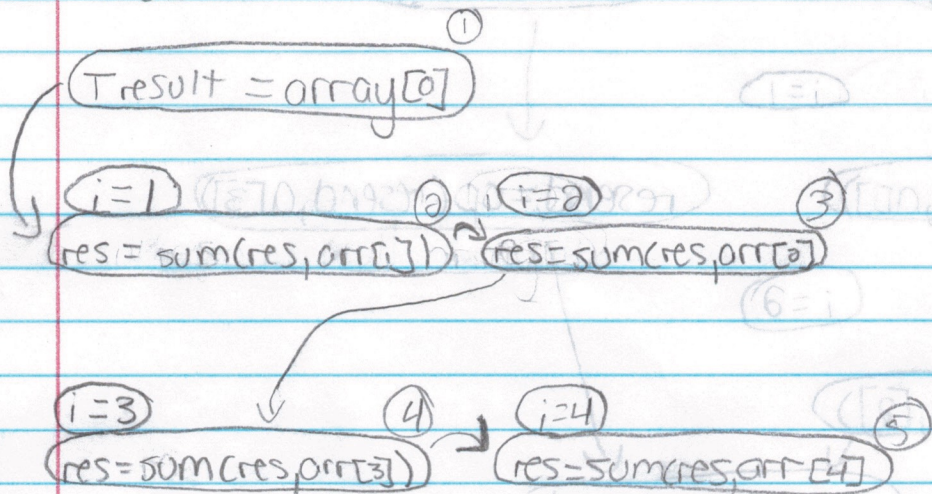 ①
T result = array[0]
i=1 ② i=2 ③
res = sum(res,arr[1]) res=sum(res,arr[2])
i=3 ④ i=4 ⑤
res=sum(res,arr[3]) res=sum(res,arr[4]